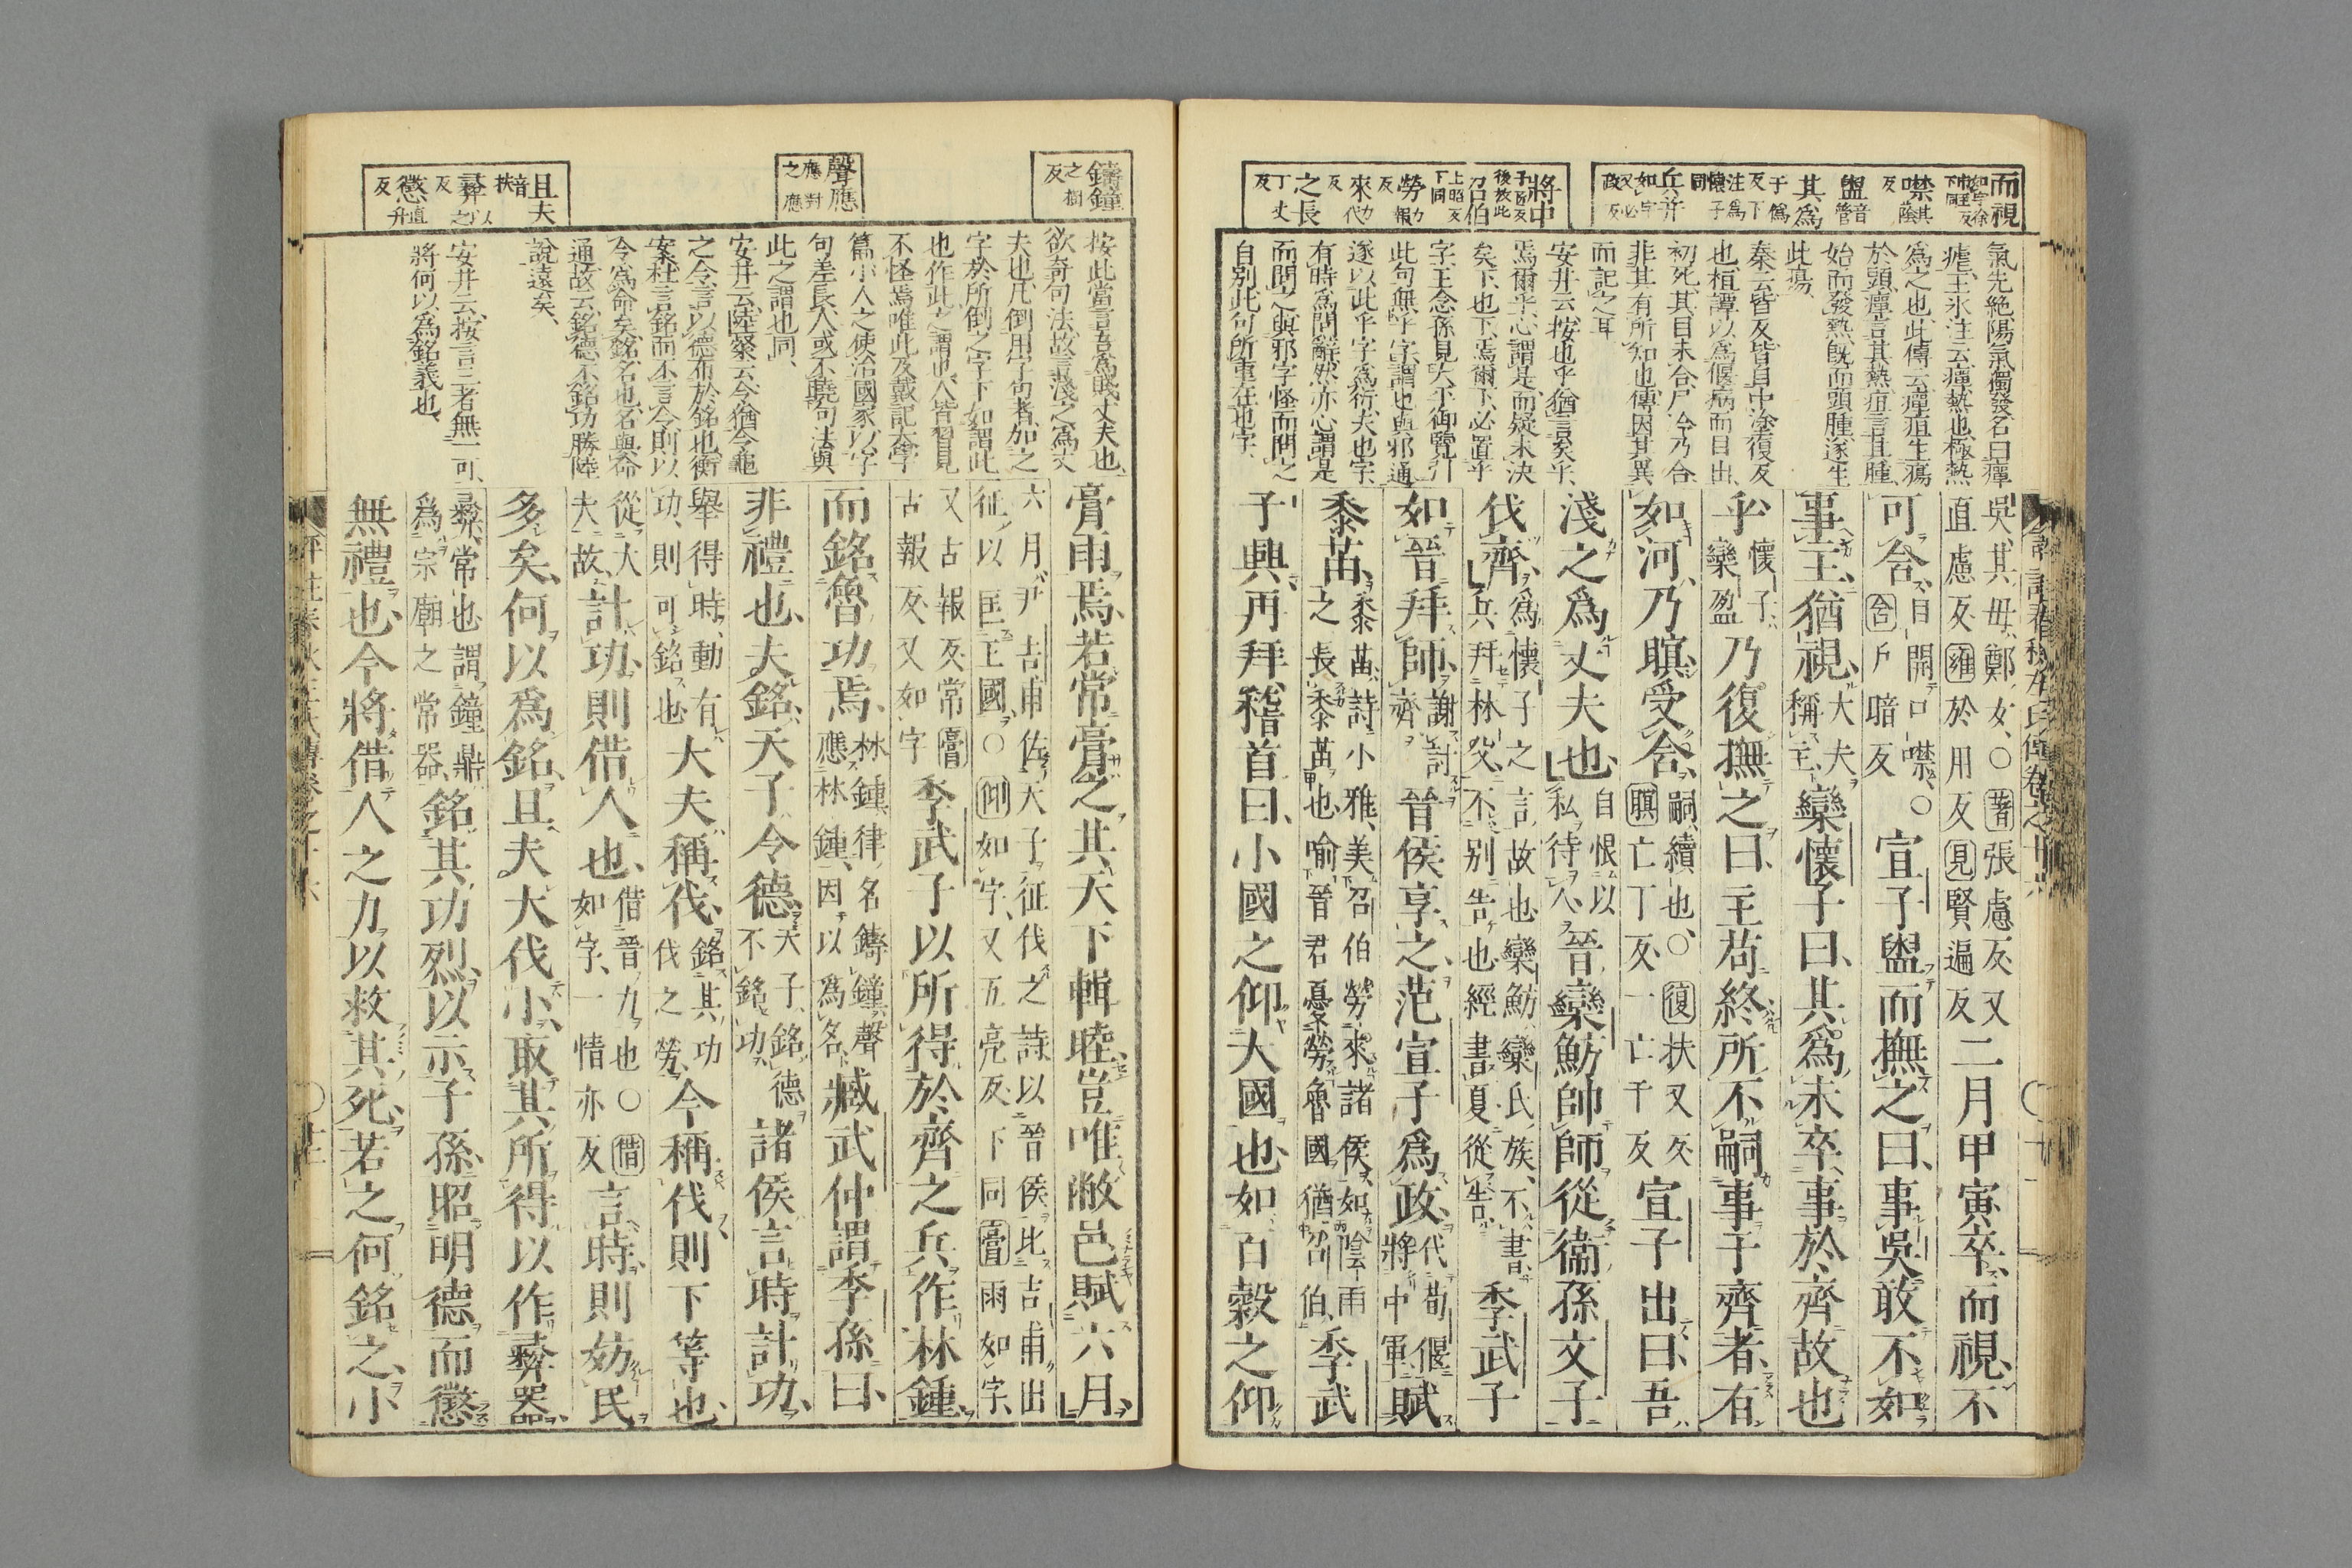 而視
如字徐市至反下同
噤其蔭反
盥音管
其爲于僞反下注爲懷子同
丘并如字又必政反
將中子匠反後放此
召伯上照反下同
勞力報反
來力代反
之長丁丈反
氣先絶陽氣獨發名曰癉
瘧王冰注云癉熱也極熱
爲之也此傳云癉疽生瘍
於頭癉言其熱疽言其腫
始而發熱旣而頭腫遂生
此瘍
秦云皆反皆自中塗復反
也桓譚以爲偃病而目出
初死其目未合尸冷乃合
非其有所知也傳因其異
而記之耳
安井云按也乎猶言矣乎
焉爾乎心謂是而疑未決
矣下也下焉爾下必置乎
字王念孫見大平御覽引
此句無乎字謂也與邪通
遂以此乎字爲衍夫也字
有時爲問辭然亦心謂是
而問之與邪字怪而問之
自別此句所重在也字
吳其母鄭女○著張慮反又
直慮反雍於用反見賢遍反
二月甲寅卒而視不
可含目開口噤○含戶暗反
宣子盥而撫之曰事吳敢不如
事主猶視大夫稱主
欒懷子曰其爲未卒事於齊故也
乎懷子欒盈
乃復撫之曰主苟終所不嗣事于齊者有
如河乃瞑受含嗣續也○復扶又反瞑亡丁反一亡千反
宣子出曰吾
淺之爲丈夫也自恨以私待人
晉欒魴帥師從衞孫文子
伐齊爲懷子之言故也欒魴欒氏族不書兵幷林父不別告也經書夏從告
季武子
如晉拜師謝討齊
晉侯享之范宣子爲政代荀偃將中軍
賦
黍苗黍苗詩小雅美召伯勞來諸侯如陰雨之長黍苗也喻晉君憂勞魯國猶召伯
季武
子興再拜稽首曰小國之仰大國也如百穀之仰
鑄鐘之樹反
聲應應對之應
且夫音扶
彝以之反
懲直升反
按此當言吾爲賤丈夫也
欲奇句法故言淺之爲丈
夫也凡倒用字句者加之
字於所倒之字下如謂此
也作此之謂也人皆習見
不怪焉唯此及戴記大學
篇小人之使治國家以字
句差長人或不曉句法與
此之謂也同
安井云陸粲云令猶令龜
之令言以德布於銘也衡
案杜言銘而不言令則以
令爲命矣銘名也名與命
通故云銘德不銘功勝陸
說遠矣
安井云按言三者無一可
將何以爲銘義也
膏雨焉若常膏之其天下輯睦豈唯敝邑賦六月
六月尹吉甫佐天子征伐之詩以晉侯比吉甫出
征以匡王國○仰如字又五亮反下同膏雨如字
又古報反常膏古報反又如字
季武子以所得於齊之兵作林鍾
而銘魯功焉林鍾律名鑄鐘聲應林鍾因以爲名
臧武仲謂季孫曰
非禮也夫銘天子令德天子銘德不銘功
諸侯言時計功
舉得時動有功則可銘也
大夫稱伐銘其功伐之勞
今稱伐則下等也
從大夫故
計功則借人也借晉力也○借如字一情亦反
言時則妨民
多矣何以爲銘且夫大伐小取其所得以作彝器
彝常也謂鐘鼎爲宗廟之常器
銘其功烈以示子孫昭明德而懲
無禮也今將借人之力以救其死若之何銘之小